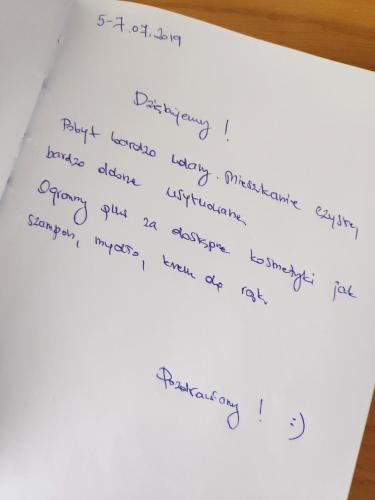 5-7.07.2019
Dziękujemy !
Pobyt bardzo udany. Mieszkanie czyste,
bardzo dobrze usytuowane
Ogromny plus za dostępne kosmetyki jak
szampon, mydło, krem do rąk.
Pozdrawiamy ! :)